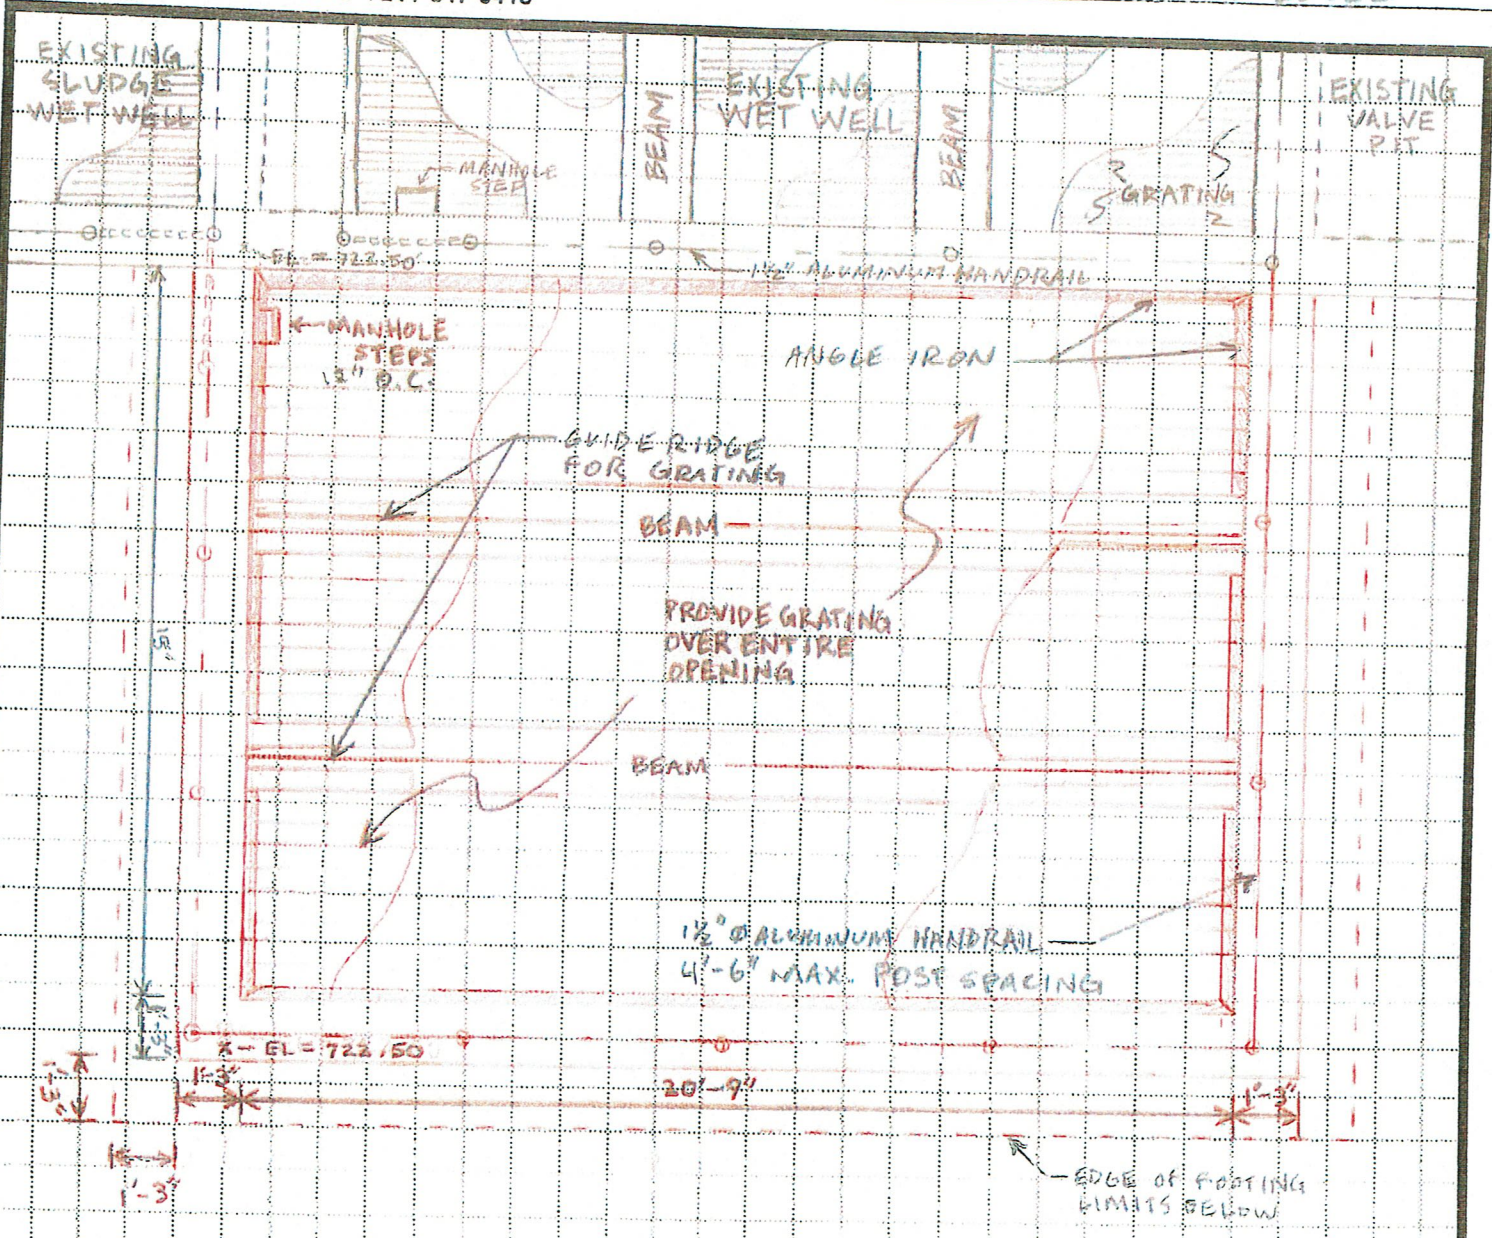 EXISTING
SLUDGE
WET WELL
MANHOLE
STEP
BEAM
EXISTING
WET WELL
BEAM
GRATING
EXISTING
VALVE
PIT
EL = 722.50'
1½" ALUMINUM HANDRAIL
MANHOLE
STEPS
12" O.C.
ANGLE IRON
GUIDE RIDGE
FOR GRATING
BEAM
15'
PROVIDE GRATING
OVER ENTIRE
OPENING
BEAM
1½" Ø ALUMINUM HANDRAIL
4'-6" MAX. POST SPACING
X - EL = 722.50
1'-3"
20'-9"
1'-3"
1'-3"
1'-3"
1'-3"
EDGE OF FOOTING
LIMITS BELOW